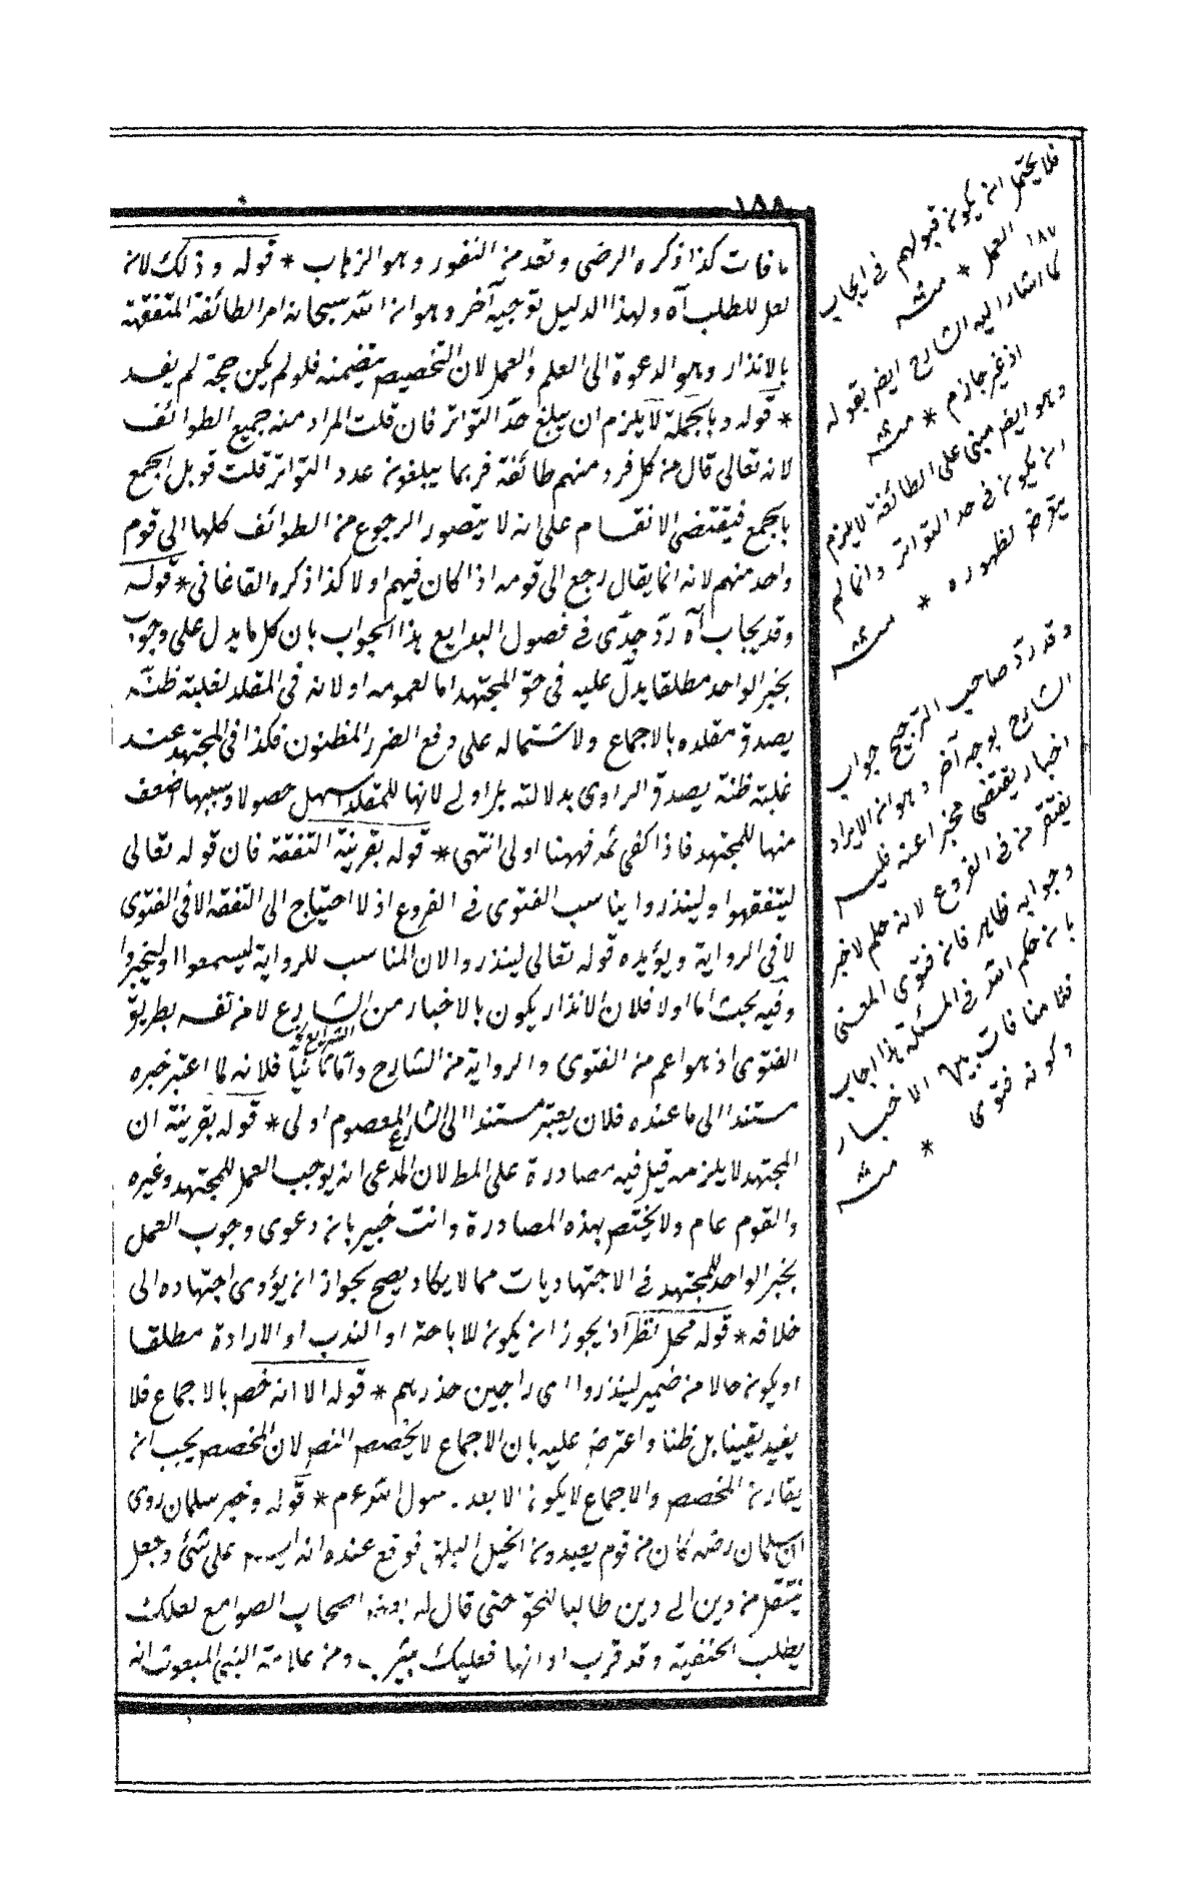 ١٨٨
ما فات كذا ذكره الرضى وتعد من النفور وهو الذهاب * قوله وذلك لان
لعل للطلب آه ولهذا الدليل توجيه آخر وهو ان الله سبحانه امر الطائفة المتفقهة
بالانذار وهو الدعوة الى العلم والعمل لان التخصيص يتضمنه فلو لم يكن حجة لم يفد
* قوله وبالجملة لا يلزم ان يبلغ حد التواتر فان قلت المراد منه جميع الطوائف
لانه تعالى قال من كل فرد منهم طائفة فربما يبلغون عدد التواتر قلت قوبل الجمع
بالجمع فيقتضى الانقسام على انه لا يتصور الرجوع من الطوائف كلها الى قوم
واحد منهم لانه انما يقال رجع الى قومه اذا كان فيهم اولا كذا ذكره القاغانى * قوله
وقد يجاب آه رد جدى فى فصول البدايع هذا الجواب بان كل ما يدل على وجوب
بخبر الواحد مطلقا يدل عليه فى حق المجتهد اما لعمومه او لانه فى المقلد لغلبة ظنه
يصدق مقلده بالاجماع ولاشتماله على دفع الضرر المظنون فكذا فى المجتهد عند
غلبة ظنه يصدق الراوى بدلالته بل اولى لانها للمقلد اسهل حصولا وسببها اضعف
منها للمجتهد فاذا كفى ثمه فههنا اولى انتهى * قوله بقرينة التفقه فان قوله تعالى
ليتفقهوا ولينذروا يناسب الفتوى فى الفروع اذ لا احتياج الى التفقه الا فى الفتوى
لا فى الرواية ويؤيده قوله تعالى لينذروا لان المناسب للرواية ليسمعوا وليخبروا
وفيه بحث اما اولا فلان الانذار يكون بالاخبار من الشارع لا من نفسه بطريق
الفتوى اذ هو اعم من الفتوى والرواية من الشارح واما ثانيا فلانه لما اعتبر خبره
مستندا الى ما عنده فلان يعتبر مستندا الى الشارع المعصوم اولى * قوله بقرينة ان
المجتهد لا يلزمه قيل فيه مصادرة على المط لان المدعى انه يوجب العمل للمجتهد وغيره
والقوم عام ولا يختص بهذه المصادرة وانت خبير بان دعوى وجوب العمل
بخبر الواحد للمجتهد فى الاجتهاديات مما لا يكاد يصح لجواز ان يؤدى اجتهاده الى
خلافه * قوله محل نظر اذ يجوز ان يكون للاباحة او الندب او الارادة مطلقا
او يكون حالا من ضمير لينذروا اى راجين حذرهم * قوله الا انه خص بالاجماع فلا
يفيد يقينا بل ظنا واعترض عليه بان الاجماع لا يخصص النص لان المخصص يجب ان
يقارن المخصص والاجماع لا يكون الا بعد رسول الله عم * قوله وخبر سلمان روى
ان سلمان رضه كان من قوم يعبدون الخيل البلق فوقع عنده انه ليس على شئ وجعل
ينتقل من دين الى دين طالبا للحق حتى قال له بعض اصحاب الصوامع لعلك
يطلب الحنفية وقد قرب اوانها فعليك بيثرب ومن علامة النبى المبعوث انه
فلا يحتمل ان يكون قبولهم فى ايجاب
العمل * منه
١٨٧
كما اشار اليه الشارح ايضا بقوله
اذ غير جازم * منه
وهو ايضا مبنى على الطائفة لا يلزم
ان يكون فى حد التواتر وانما لم
يتعرض لظهوره * منه
وقد رد صاحب الترجيح جواب
الشارح بوجه آخر وهو ان الايراد
اخبار يقتضى مخبرا عنه فليس
يفتقر من فى الفروع لانه حكم لا خبر
وجوابه ظاهر فان فتوى المفتى
بان حكم الله فى المسئلة هذا اجاب
فلا منافات بين الاخبار
وكونه فتوى * منه